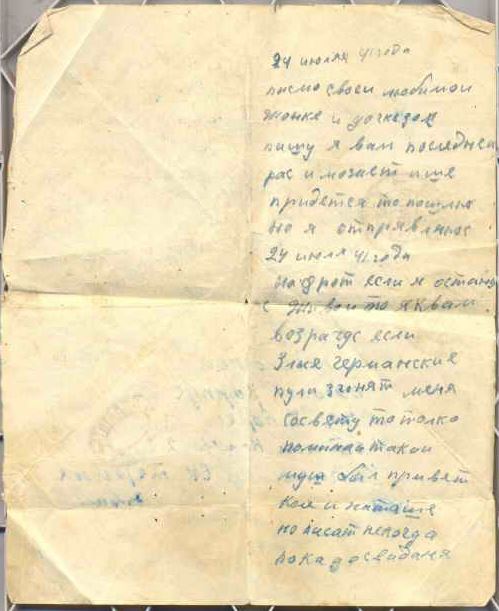 24 июля 41 года
писмо своеи любимои
жонке и дочкезом
пишу я вам последнеи
рас и можест ише
придется то пошлю
но я отпрявлянюс
24 июля 41 года
на фрот если я остану
с живои то я к вам
возрачус если
Злые германские
пули згонят меня
Сосвету то толко
поминаи такои
муш был привет
коле и наташе
но писат некогда
пока досвиданя